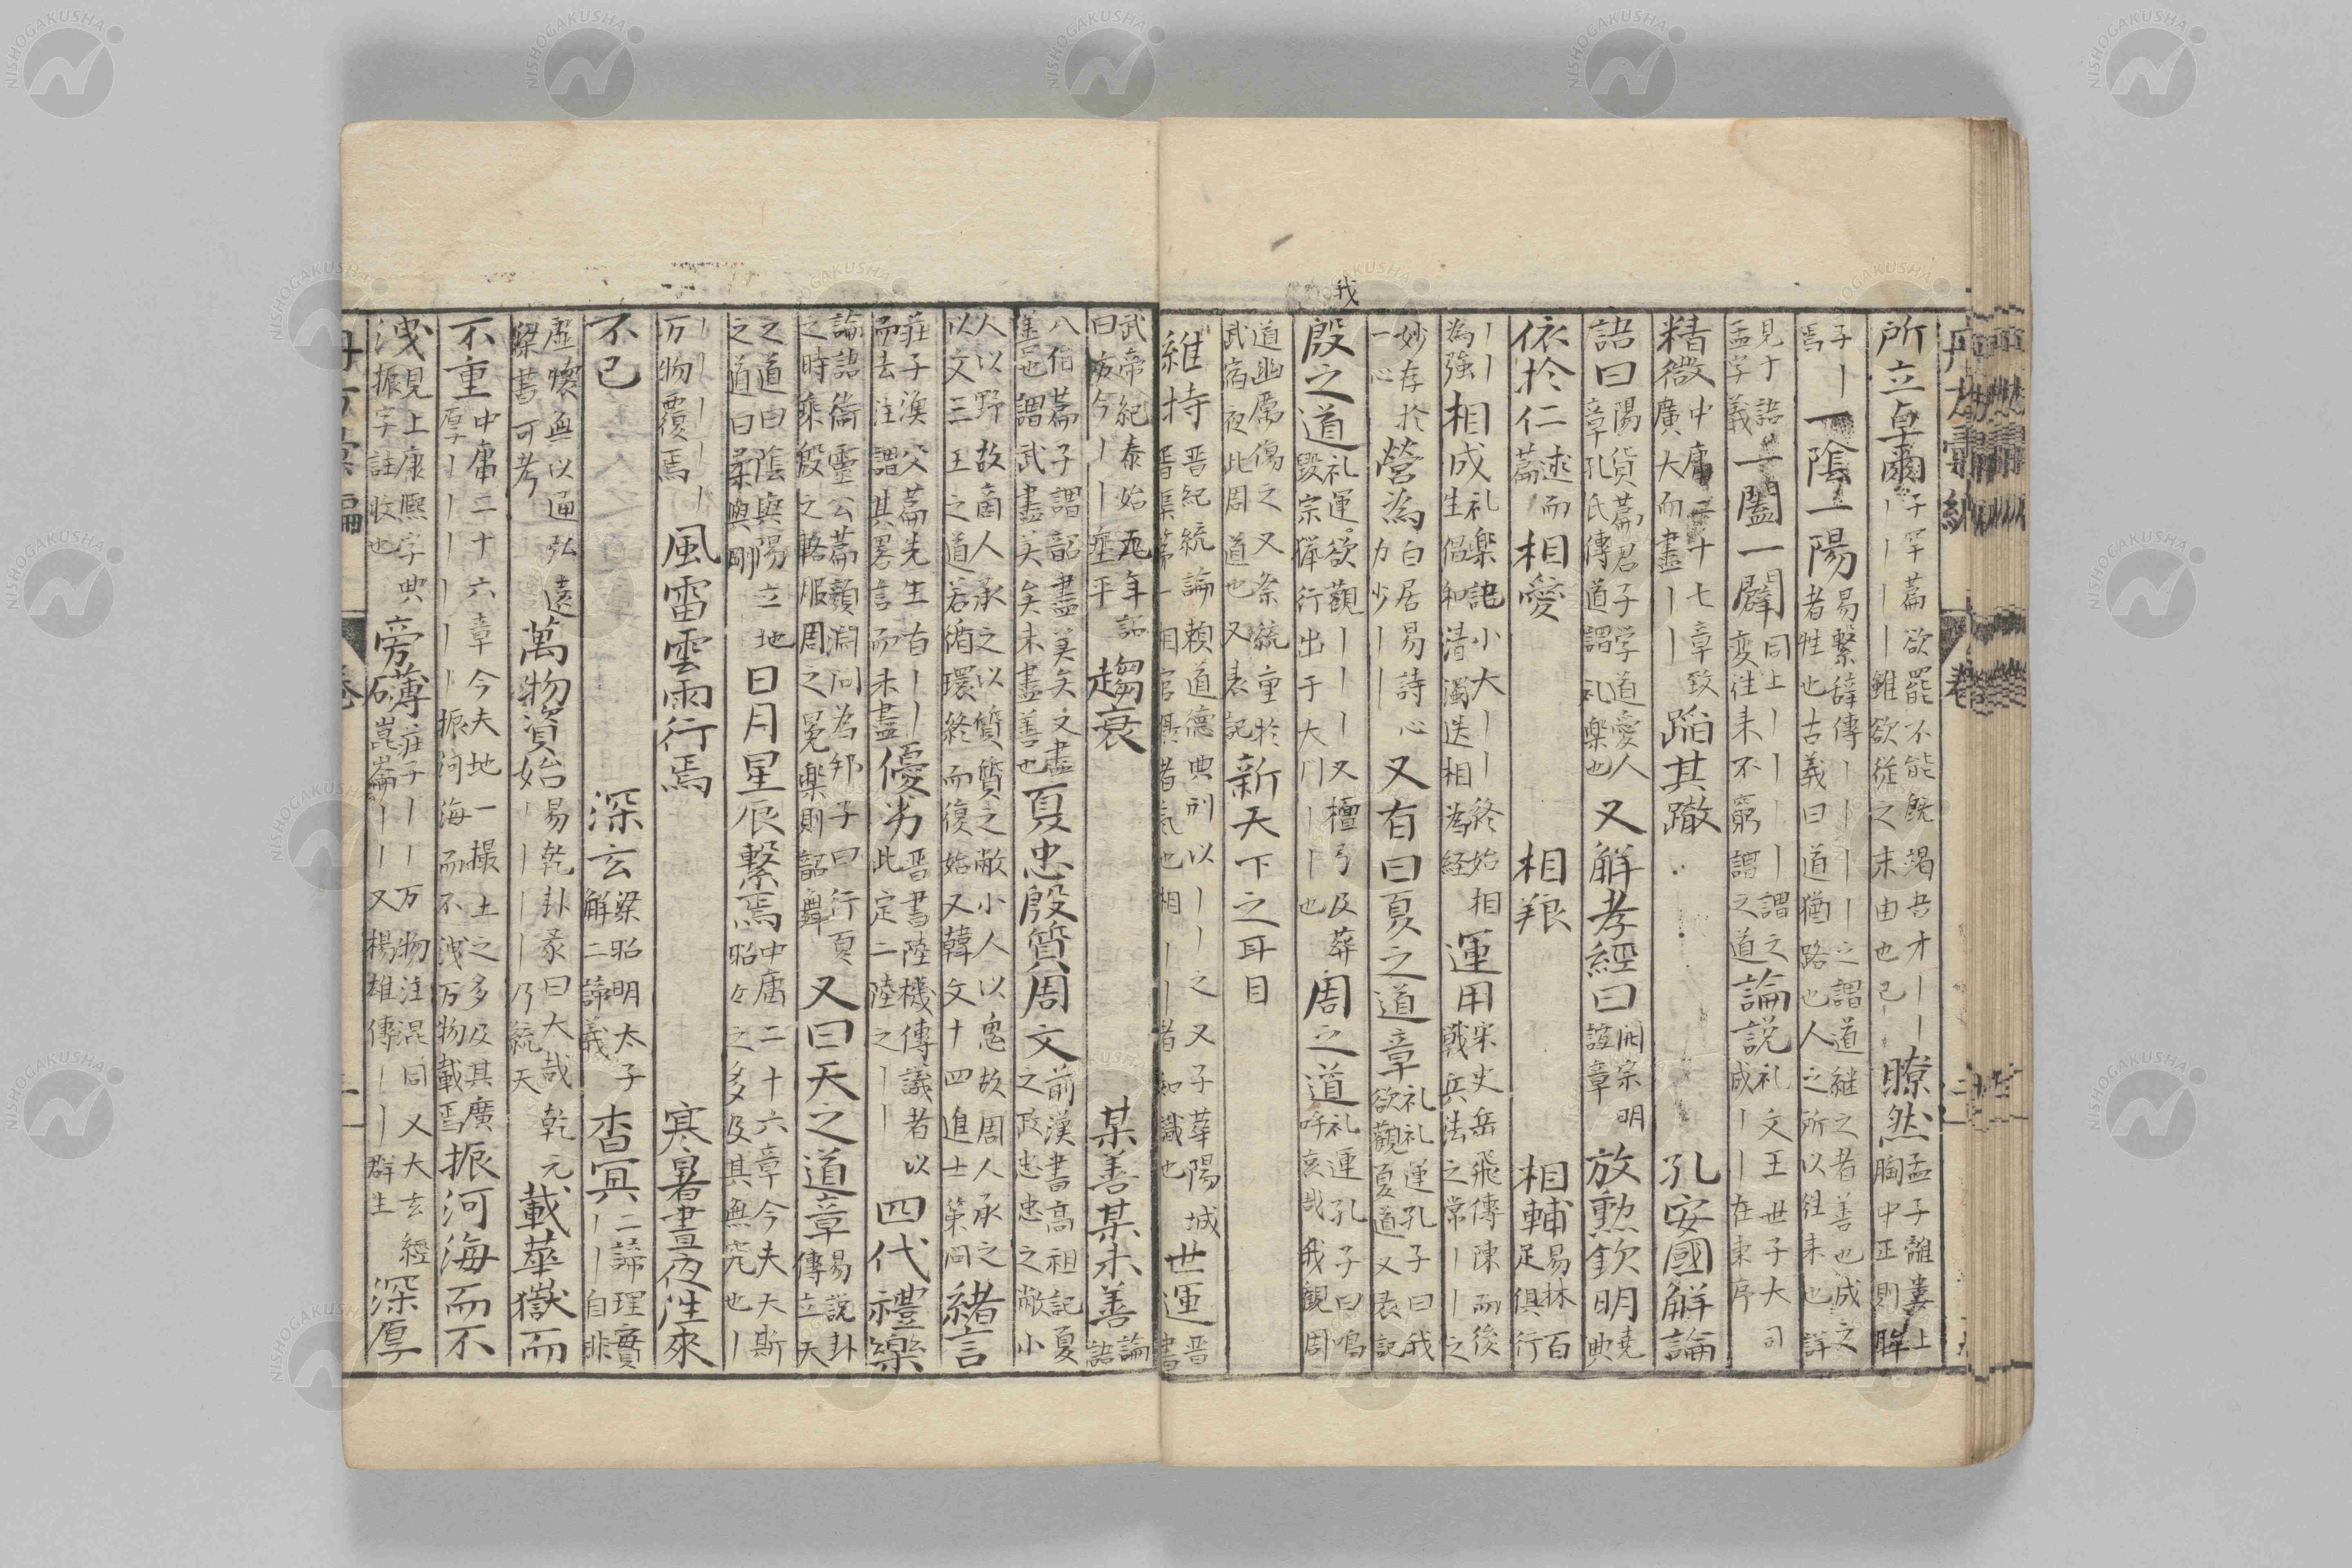 所立卓爾子罕篇欲罷不能既竭吾才丨丨丨丨雖欲従之末由也已瞭然孟子離婁上胸中正則眸
子丨丨焉一陰一陽易繫辞傳丨丨丨丨之謂道継之者善也成之者性也古義曰道猶路也人之所以往来也詳
見于語孟字義一闔一闢同上丨丨丨丨謂之変往来不窮謂之道論説礼文王世子大司成丨丨在東序
精微中庸二十七章致廣大而盡丨丨蹈其轍孔安國解論
語曰陽貨篇君子学道愛人章孔氏傳道謂礼樂也又解孝經曰開宗明誼章放勲欽明堯典
依於仁述而篇相愛相羪相輔易林百足俱行
丨丨為強相成礼樂記小大丨丨終始相生倡和清濁迭相為経運用宋史岳飛傳陳而後戦兵法之常丨丨之
妙存於一心營為白居易詩心力少丨丨又有曰夏之道章礼礼運孔子曰我欲觀夏道又表記
殷之道礼運欲觀丨丨丨又檀弓及葬毀宗猟行出于大门丨丨丨也周之道礼運孔子曰嗚呼哀哉我觀周
我
道幽厲傷之又祭統重於武宿夜此周道也又表記新天下之耳目
維持晋紀統論頼道德典刑以丨丨之又子華陽城世運晋書
武帝紀泰始五年詔曰方今丨丨壅平趨衰某善某未善論語
八佾篇子謂韶盡美矣又盡善也謂武盡美矣未盡善也夏忠殷質周文前漢書高祖記夏之政忠忠之敝小
人以野故商人承之以質質之敝小人以鬼故周人承之以文三王之道若循環終而復始又韓文十四進士策问緒言
莊子漁父篇先生有丨丨而去注謂其畧言而未盡優劣晋書陸機傳議者以此定二陸之丨丨四代禮樂
論語衛靈公篇顏淵问為邦子曰行夏之時乘殷之輅服周之冕樂則韶舞又曰天之道章易説卦傳立天
之道曰陰與陽立地之道曰柔與剛日月星辰繫焉中庸二十六章今夫天斯昭々之多及其無窮也丨
丨丨丨丨丨丨万物覆焉風雷雲雨行焉寒暑晝夜徃來
不已深玄梁昭明太子解二諦義杳冥二諦理實丨丨自非
虚懐無以通弘遠梁書可考萬物資始易乾卦彖曰大哉乾元丨丨丨丨乃統天載華嶽而
不重中庸二十六章今夫地一撮土之多及其廣厚丨丨丨丨丨丨振河海而不洩万物載焉振河海而不
洩見上康熙字典振字註收也旁礴莊子丨丨万物注混同又大玄經崑崙丨丨又楊雄傳丨丨群生深厚